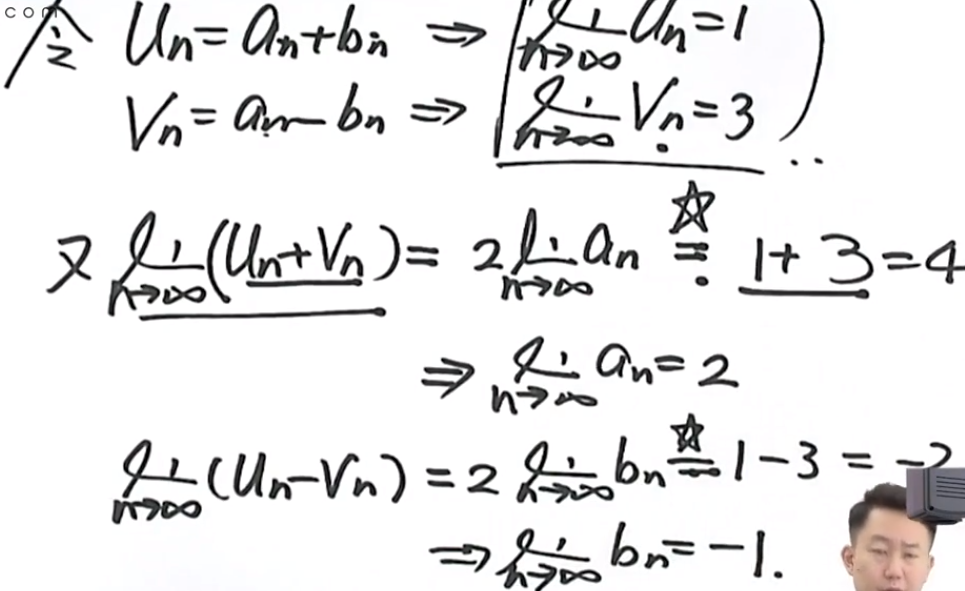 com
令 Un = an + bn ⇒ lim n→∞ Un = 1
Vn = an − bn ⇒ lim n→∞ Vn = 3
又 lim n→∞ (Un + Vn) = 2 lim n→∞ an ☆= 1 + 3 = 4
⇒ lim n→∞ an = 2
lim n→∞ (Un − Vn) = 2 lim n→∞ bn ☆= 1 − 3 = −2
⇒ lim n→∞ bn = −1.